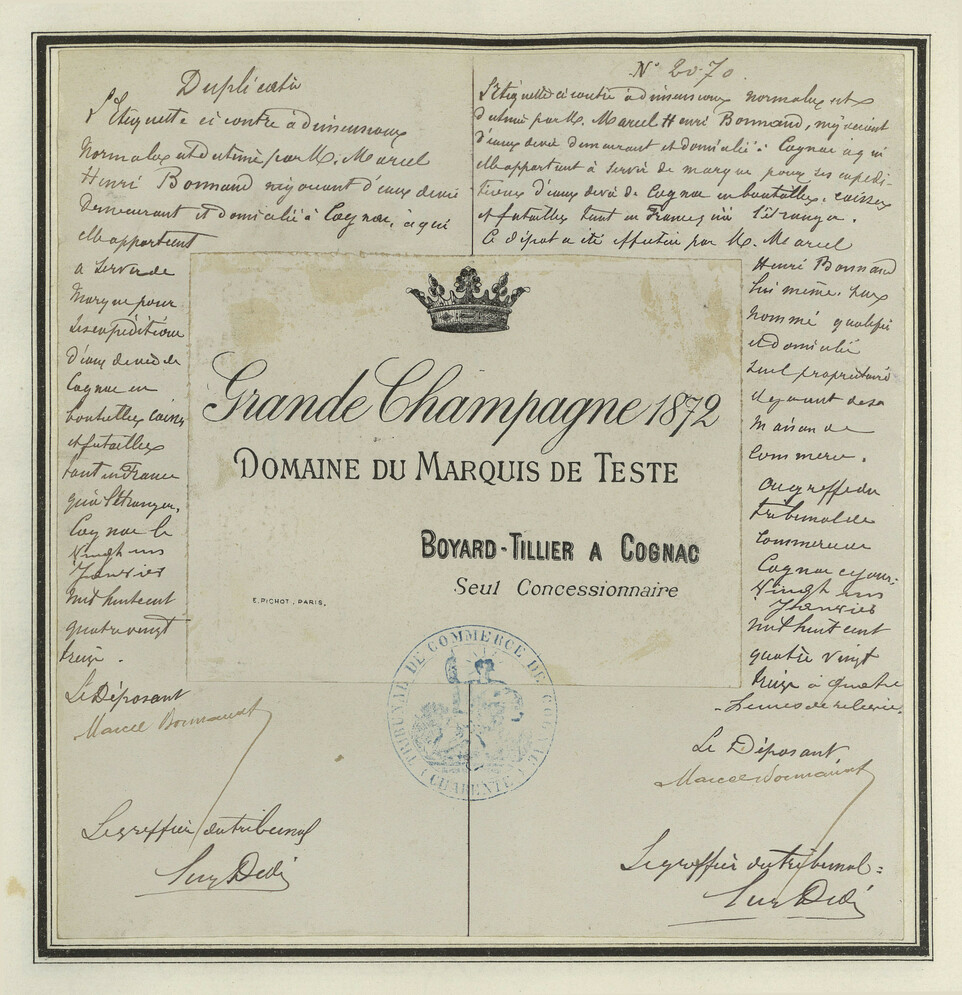 Duplicata
L'Etiquette ci contre à dimensions
normales est destinée par M. Marcel
Henri Bonnaud négociant d'eaux de vie
Demeurant et domicilié à Cognac, à qui
elle appartient
a servir de
marque pour
ses expéditions
d'eaux de vie de
Cognac en
bouteilles, caisses
et futailles
tant en France
qu'à l'étranger.
Cognac le
vingt un
Janvier
mil huit cent
quatre vingt
treize.
Le Déposant
Marcel Bonnaud
Le greffier du tribunal
N° 2070.
L'étiquette ci contre à dimensions normales est
destinée par M. Marcel Henri Bonnaud, négociant
d'eaux de vie demeurant et domicilié à Cognac à qui
elle appartient à servir de marque pour ses expédi-
tions d'eaux de vie de Cognac en bouteilles, caisses
et futailles tant en France qu'à l'étranger.
Ce dépôt a été effectué par M. Marcel
Henri Bonnaud
lui même, sus
nommé qualifié
et domicilié
seul propriétaire
et gérant de sa
maison de
commerce.
Au greffe du
tribunal de
commerce de
Cognac ce jour
vingt un
Janvier
mil huit cent
quatre vingt
treize à quatre
heures de relevée.
Le Déposant
Marcel Bonnaud
Le greffier du tribunal
Grande Champagne 1872
DOMAINE DU MARQUIS DE TESTE
BOYARD-TILLIER A COGNAC
Seul Concessionnaire
E. PICHOT, PARIS.
TRIBUNAL DE COMMERCE DE COGNAC
(CHARENTE)